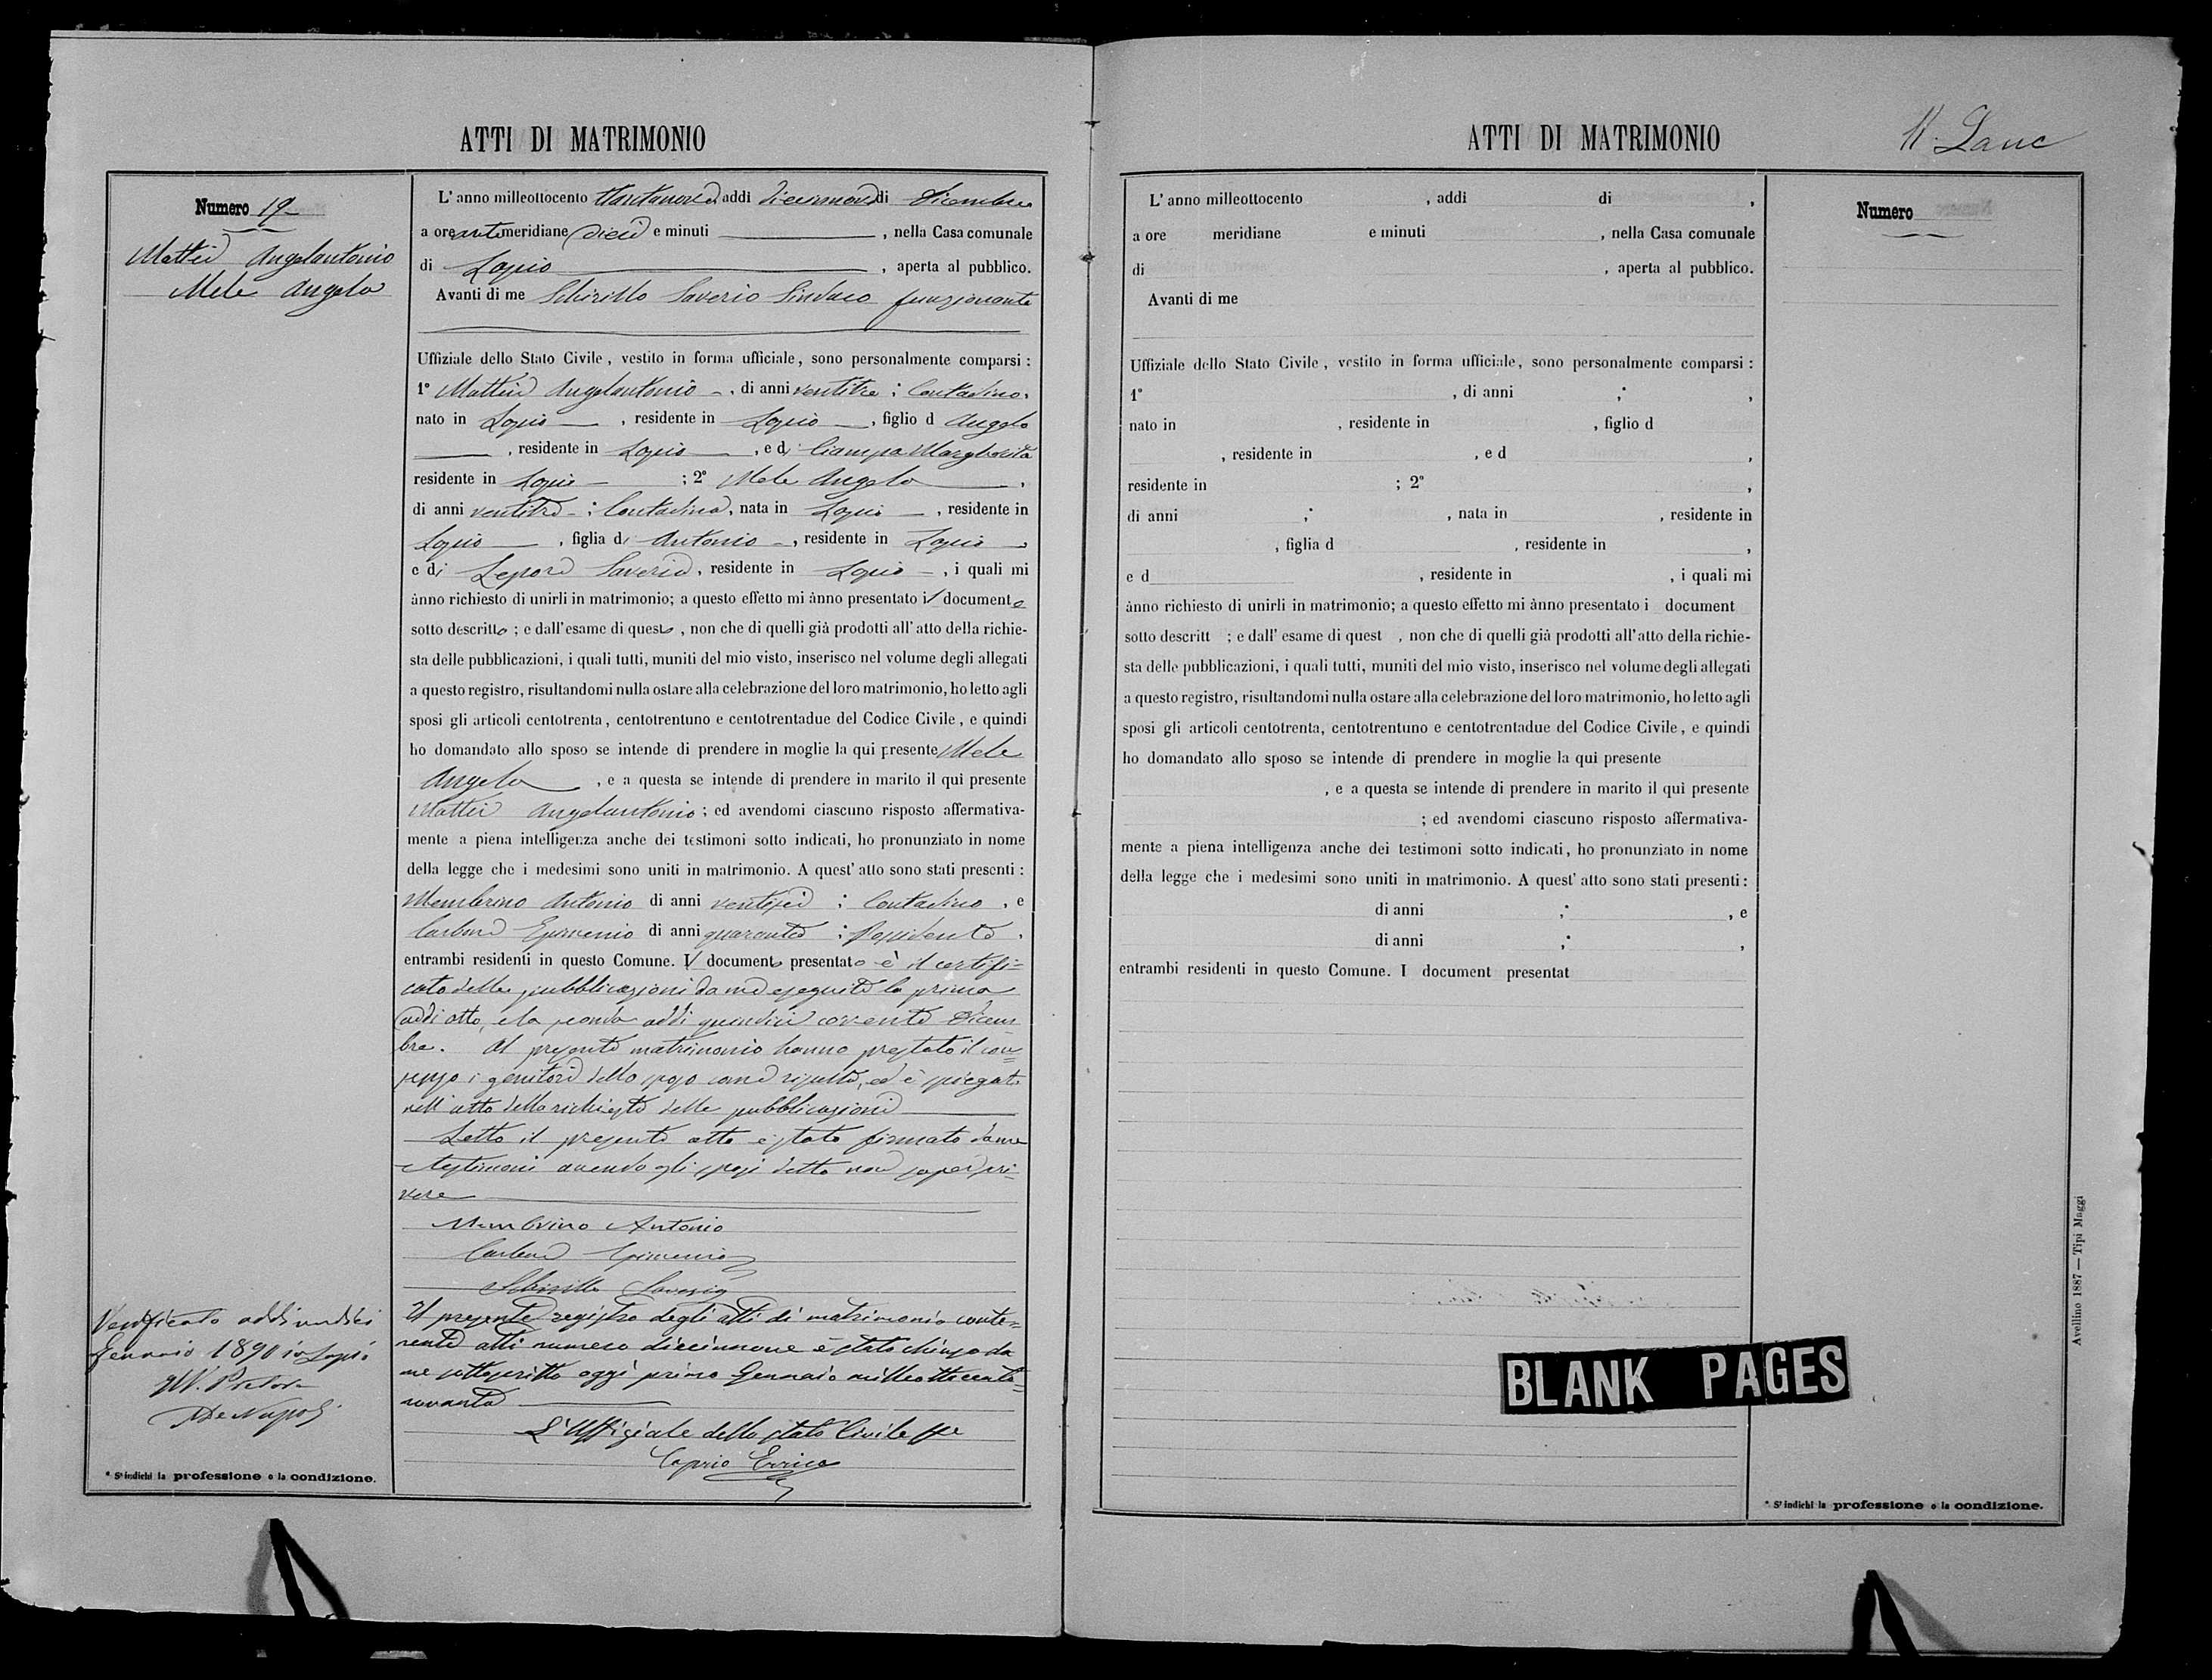 ATTI DI MATRIMONIO
Numero 19
Mattei Angelantonio
Mele Angela
L' anno milleottocento ottantanove, addi diecinnove di Dicembre
a ore antimeridiane dieci e minuti , nella Casa comunale
di Lapio , aperta al pubblico.
Avanti di me Schirillo Saverio Sindaco funzionante
Uffiziale dello Stato Civile, vestito in forma ufficiale, sono personalmente comparsi :
1° Mattei Angelantonio , di anni ventitre ; Contadino,
nato in Lapio , residente in Lapio , figlio d Angelo
, residente in Lapio , e di Ciampa Margherita
residente in Lapio ; 2° Mele Angela ,
di anni ventitre ; Contadina, nata in Lapio , residente in
Lapio , figlia di Antonio , residente in Lapio ,
e di Lepore Saveria, residente in Lapio , i quali mi
ànno richiesto di unirli in matrimonio; a questo effetto mi ànno presentato il documento
sotto descritto ; e dall' esame di questo , non che di quelli già prodotti all' atto della richie-
sta delle pubblicazioni, i quali tutti, muniti del mio visto, inserisco nel volume degli allegati
a questo registro, risultandomi nulla ostare alla celebrazione del loro matrimonio, ho letto agli
sposi gli articoli centotrenta, centotrentuno e centotrentadue del Codice Civile, e quindi
ho domandato allo sposo se intende di prendere in moglie la qui presente Mele
Angela , e a questa se intende di prendere in marito il qui presente
Mattei Angelantonio ; ed avendomi ciascuno risposto affermativa-
mente a piena intelligenza anche dei testimoni sotto indicati, ho pronunziato in nome
della legge che i medesimi sono uniti in matrimonio. A quest' atto sono stati presenti :
Membrino Antonio di anni ventisei ; Contadino , e
Carbone Epimenio di anni quaranta ; Possidente ,
entrambi residenti in questo Comune. Il documento presentato è il certifi=
cato delle pubblicazioni da me eseguite la prima
addi otto, e la seconda addi quindici corrente Dicem
bre. Al presente matrimonio hanno prestato il con=
senso i genitori dello sposo come risulta, ed è spiegato
nell' atto della richiesta delle pubblicazioni
Letto il presente atto è stato firmato da me
e testimoni avendo gli sposi detto non saper scri=
vere
Membrino Antonio
Carbone Epimenio
Schirillo Saverio
Il presente registro degli atti di matrimonio conte=
nente atti numero diecinnove è stato chiuso da
me sottoscritto oggi primo Gennaio milleottocento=
novanta
L'Uffiziale dello Stato Civile ff
Caprio Errico
Verificato addi undici
Gennaio 1890 in Lapio
Il V. Pretore
De Napoli
* S' indichi la professione o la condizione.
ATTI DI MATRIMONIO
L' anno milleottocento , addi di ,
a ore meridiane e minuti , nella Casa comunale
di , aperta al pubblico.
Avanti di me
Uffiziale dello Stato Civile, vestito in forma ufficiale, sono personalmente comparsi :
1° , di anni ; ,
nato in , residente in , figlio d
, residente in , e d ,
residente in ; 2° ,
di anni ; , nata in , residente in
, figlia d , residente in ,
e d , residente in , i quali mi
ànno richiesto di unirli in matrimonio; a questo effetto mi ànno presentato i document
sotto descritt ; e dall' esame di quest , non che di quelli già prodotti all' atto della richie-
sta delle pubblicazioni, i quali tutti, muniti del mio visto, inserisco nel volume degli allegati
a questo registro, risultandomi nulla ostare alla celebrazione del loro matrimonio, ho letto agli
sposi gli articoli centotrenta, centotrentuno e centotrentadue del Codice Civile, e quindi
ho domandato allo sposo se intende di prendere in moglie la qui presente
, e a questa se intende di prendere in marito il qui presente
; ed avendomi ciascuno risposto affermativa-
mente a piena intelligenza anche dei testimoni sotto indicati, ho pronunziato in nome
della legge che i medesimi sono uniti in matrimonio. A quest' atto sono stati presenti :
di anni ; , e
di anni ; ,
entrambi residenti in questo Comune. I document presentat
Numero
BLANK PAGES
* S' indichi la professione o la condizione.
Avellino 1887 — Tipi Maggi